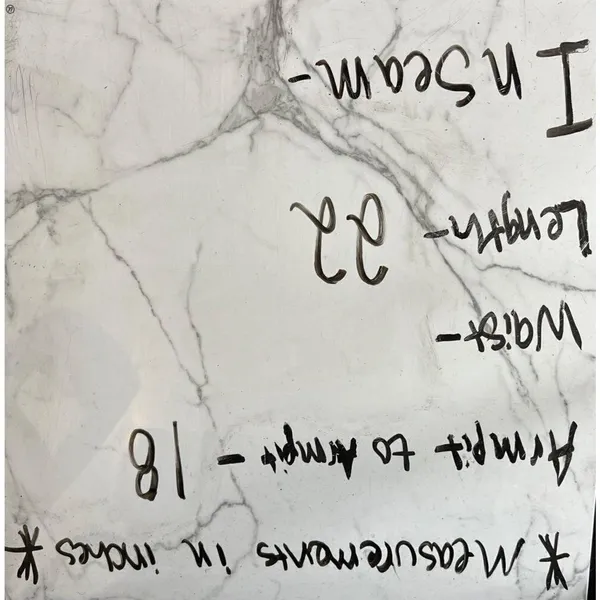 *Measurements in inches*
Armpit to Armpit - 18
Waist-
Length- 22
InSeam-